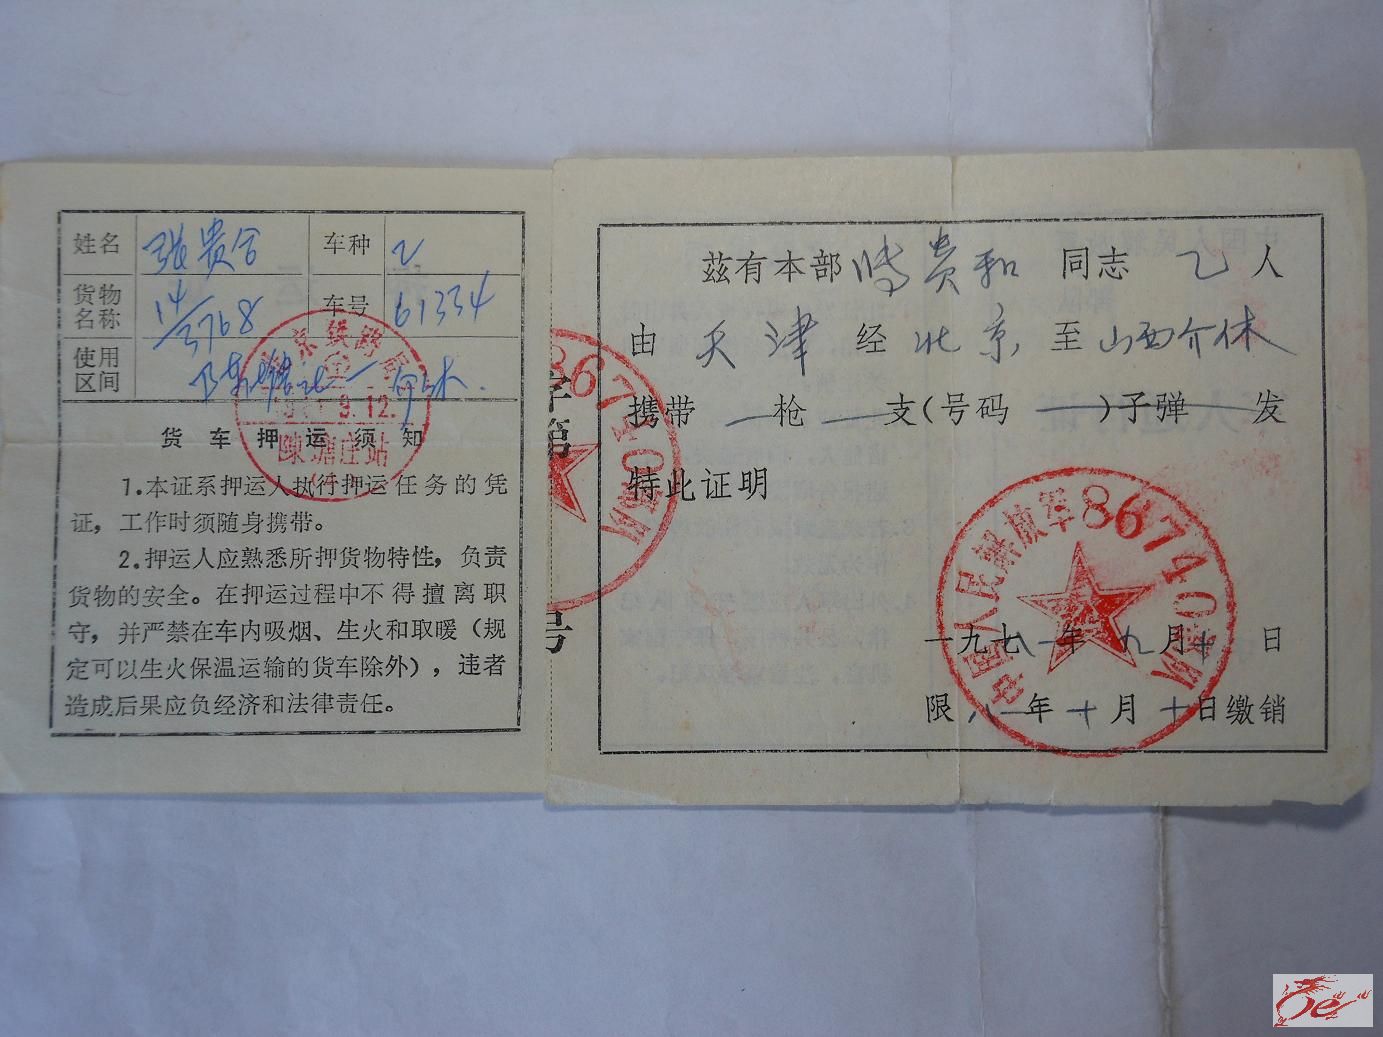 姓名 张贵合 车种 乙
货物名称 14/3768 车号 61334
使用区间
货车押运须知
1.本证系押运人执行押运任务的凭
证，工作时须随身携带。
2.押运人应熟悉所押货物特性，负责
货物的安全。在押运过程中不得擅离职
守，并严禁在车内吸烟、生火和取暖（规
定可以生火保温运输的货车除外），违者
造成后果应负经济和法律责任。
9.12.
陳塘庄站
字第
号
兹有本部 贵和 同志 乙 人
由 天津 经 北京 至 山西介休
携带 一 枪 一 支(号码 一 )子弹 一 发
特此证明
中国人民解放军86740部队
一九七八一年九月十日
限八一年十月十日缴销